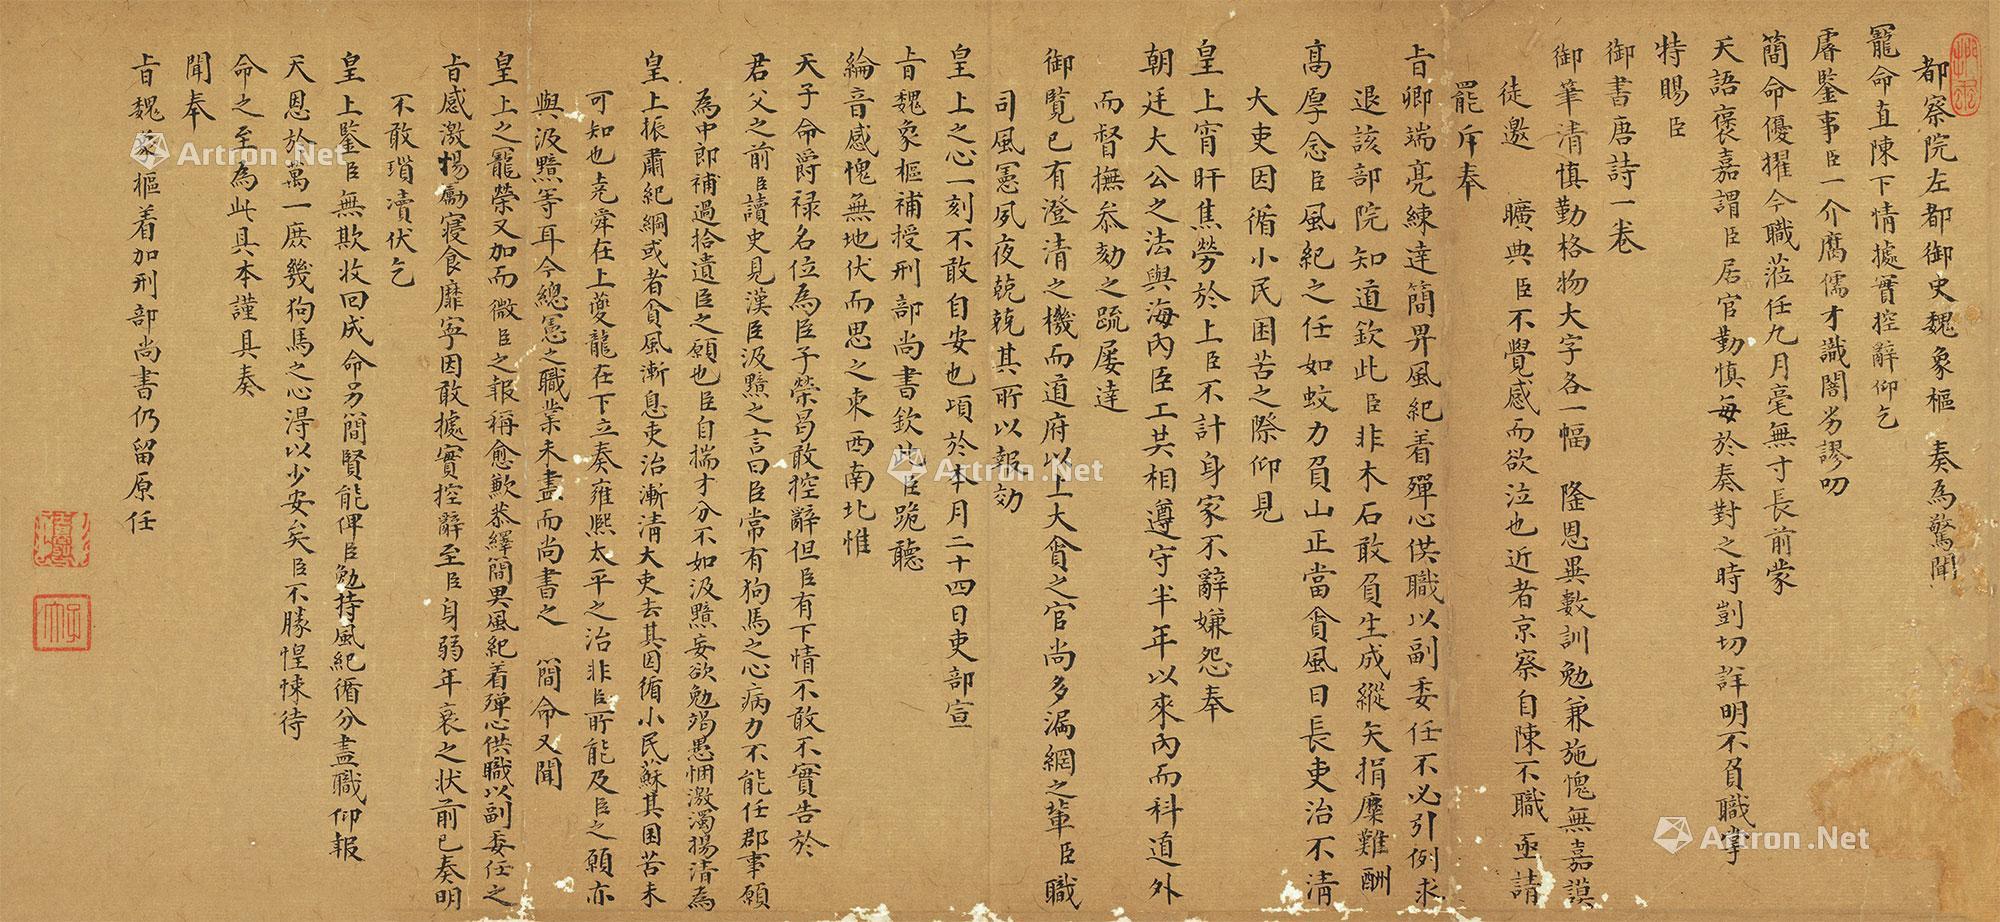 都察院左都御史魏象樞　奏為驚聞
寵命直陳下情據實控辭仰乞
睿鑒事臣一介腐儒才識闇劣謬叨
簡命優擢今職蒞任九月毫無寸長前蒙
天語襃嘉謂臣居官勤慎每於奏對之時剴切詳明不負職掌
特賜臣
御書唐詩一卷
御筆清慎勤格物大字各一幅　隆恩異數訓勉兼施愧無嘉謨
徒邀　曠典臣不覺感而欲泣也近者京察自陳不職亟請
罷斥奉
旨卿端亮練達簡畀風紀着殫心供職以副委任不必引例求
退該部院知道欽此臣非木石敢負生成縱矢捐糜難酬
高厚念臣風紀之任如蚊力負山正當貪風日長吏治不清
大吏因循小民困苦之際仰見
皇上宵旰焦勞於上臣不計身家不辭嫌怨奉
朝廷大公之法與海內臣工共相遵守半年以來內而科道外
而督撫叅劾之疏屢達
御覽已有澄清之機而道府以上大貪之官尚多漏網之輩臣職
司風憲夙夜兢兢其所以報効
皇上之心一刻不敢自安也頃於本月二十四日吏部宣
旨魏象樞補授刑部尚書欽此臣跪聽
綸音感愧無地伏而思之東西南北惟
天子命爵祿名位為臣子榮曷敢控辭但臣有下情不敢不實告於
君父之前臣讀史見漢臣汲黯之言曰臣常有狗馬之心病力不能任郡事願
為中郎補過拾遺臣之願也臣自揣才分不如汲黯妄欲勉竭愚悃激濁揚清為
皇上振肅紀綱或者貪風漸息吏治漸清大吏去其因循小民蘇其困苦未
可知也堯舜在上夔龍在下立奏雍熙太平之治非臣所能及臣之願亦
與汲黯等耳今總憲之職業未盡而尚書之　簡命又聞
皇上之寵榮又加而微臣之報稱愈歉恭繹簡畀風紀着殫心供職以副委任之
旨感激惕勵寢食靡寧因敢據實控辭至臣身弱年衰之狀前已奏明
不敢瑣瀆伏乞
皇上鑒臣無欺收回成命另簡賢能俾臣勉持風紀循分盡職仰報
天恩於萬一庶幾狗馬之心得以少安矣臣不勝惶悚待
命之至為此具本謹具奏
聞奉
旨魏象樞着加刑部尚書仍留原任
Artron.Net
Artron.Net
Artron.Net
Artron.Net